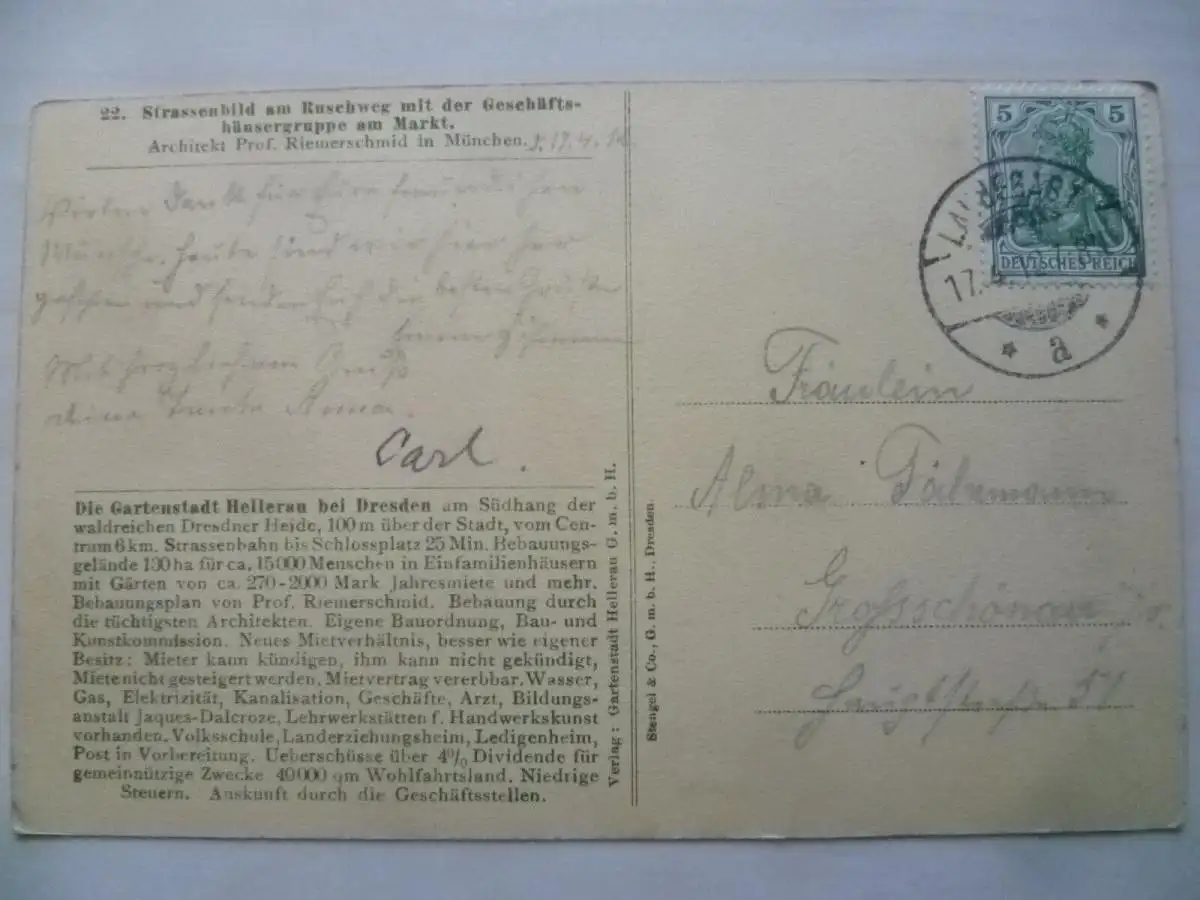 22. Strassenbild am Ruschweg mit der Geschäfts-
häusergruppe am Markt.
Architekt Prof. Riemerschmid in München.
Vielen Dank für Eure freundlichen
Wünsche. Heute sind wir hier her
und senden Euch die besten Grüße
Mit herzlichem Gruß
deine Tante Anna.
Carl.
Die Gartenstadt Hellerau bei Dresden am Südhang der
waldreichen Dresdner Heide, 100 m über der Stadt, vom Cen-
trum 6 km. Strassenbahn bis Schlossplatz 25 Min. Bebauungs-
gelände 130 ha für ca. 15000 Menschen in Einfamilienhäusern
mit Gärten von ca. 270-2000 Mark Jahresmiete und mehr.
Bebauungsplan von Prof. Riemerschmid. Bebauung durch
die tüchtigsten Architekten. Eigene Bauordnung, Bau- und
Kunstkommission. Neues Mietverhältnis, besser wie eigener
Besitz: Mieter kann kündigen, ihm kann nicht gekündigt,
Miete nicht gesteigert werden. Mietvertrag vererbbar. Wasser,
Gas, Elektrizität, Kanalisation, Geschäfte, Arzt, Bildungs-
anstalt Jaques-Dalcroze, Lehrwerkstätten f. Handwerkskunst
vorhanden. Volksschule, Landerziehungsheim, Ledigenheim,
Post in Vorbereitung. Ueberschüsse über 4% Dividende für
gemeinnützige Zwecke 40000 qm Wohlfahrtsland. Niedrige
Steuern. Auskunft durch die Geschäftsstellen.
Verlag: Gartenstadt Hellerau G. m. b. H.
Stengel & Co., G. m. b. H., Dresden.
5 5
DEUTSCHES REICH
17.
a
Fräulein
Alma
Grossschönau i/S.